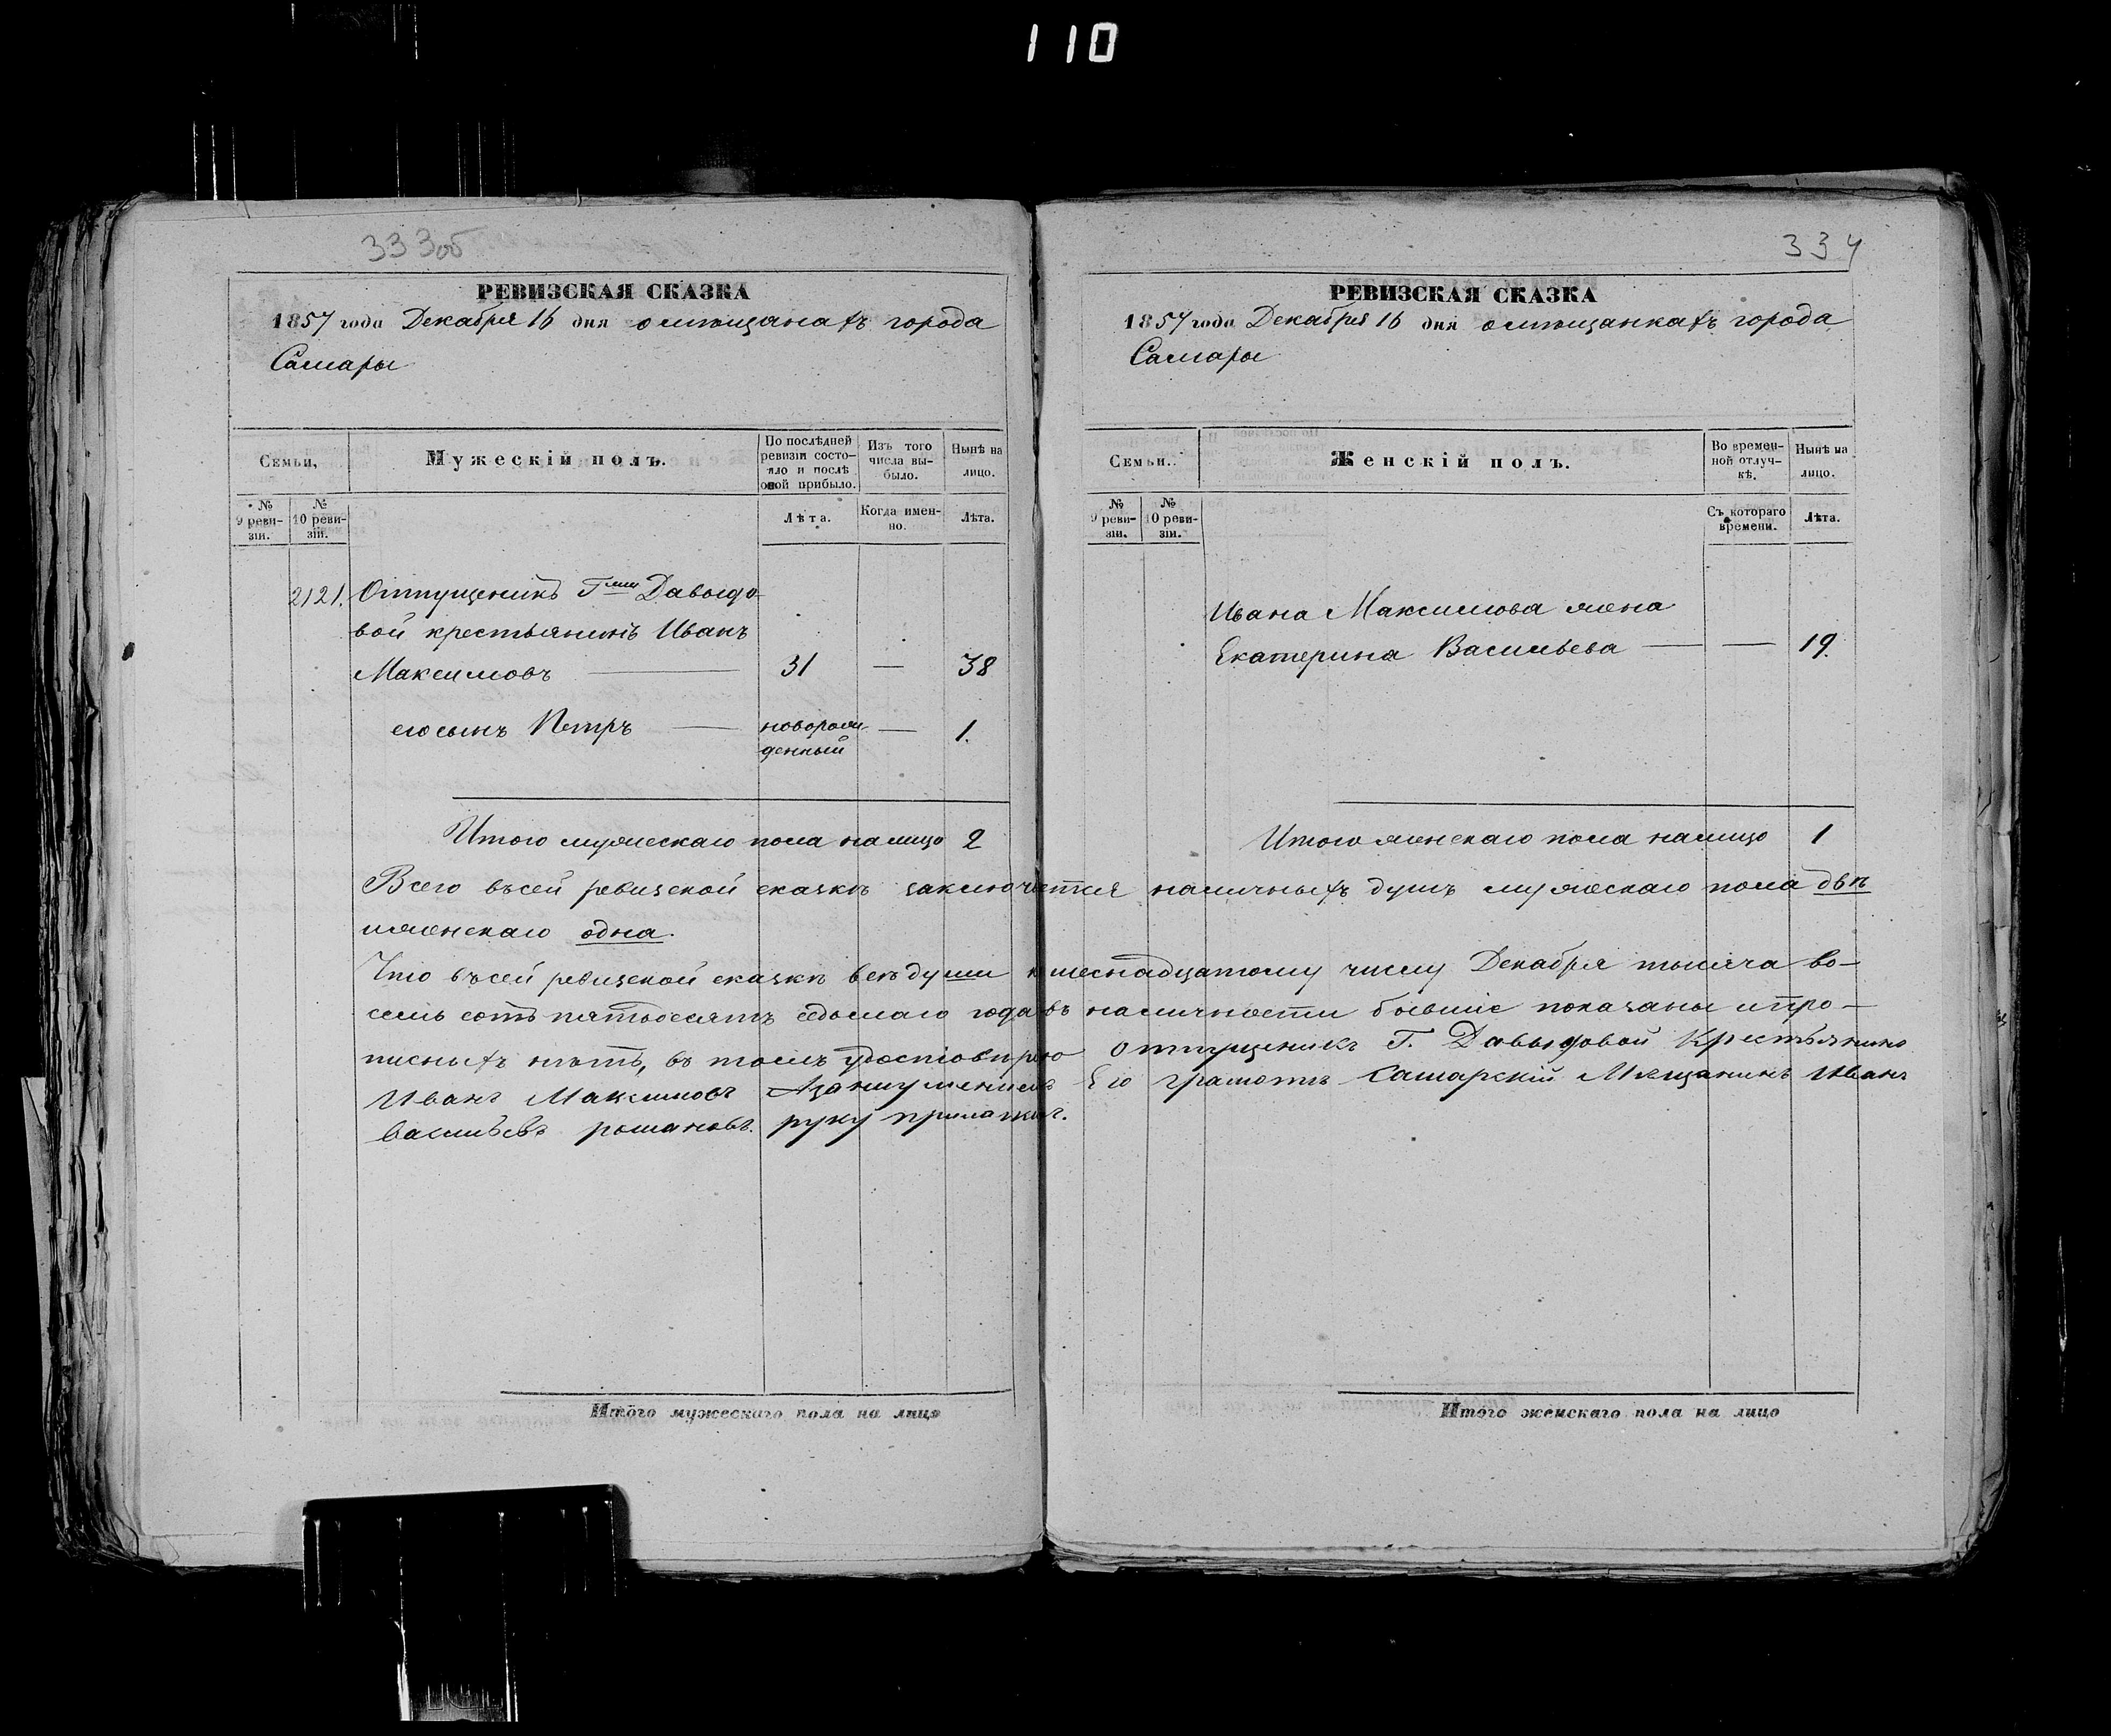 110
333об
РЕВИЗСКАЯ СКАЗКА
1857 года Декабря 16 дня о мѣщанахъ города
Самары
Семьи,
Мужескій полъ.
По послѣдней ревизіи состояло и послѣ оной прибыло.
Изъ того числа выбыло.
Нынѣ на лицо.
№ 9 ревизіи.
№ 10 ревизіи.
Лѣта.
Когда именно.
Лѣта.
2121. Отпущеникъ Гжи Давыдо-
вой крестьянинъ Иванъ
Максимовъ — 31 — 38
его сынъ Петръ — новорож-
денный — 1.
Итого мужескаго пола налицо 2
334
РЕВИЗСКАЯ СКАЗКА
1857 года Декабря 16 дня о мѣщанкахъ города
Самары
Семьи.
Женскій полъ.
Во временной отлучкѣ.
Нынѣ на лицо.
№ 9 ревизіи.
№ 10 ревизіи.
Съ котораго времени.
Лѣта.
Ивана Максимова жена
Екатерина Васильева — — 19.
Итого женскаго пола налицо 1
Всего въ сей ревизской сказкѣ заключается наличныхъ душъ мужескаго пола двѣ
и женскаго одна.
Что въ сей ревизской сказкѣ всѣ души к шестнадцатому числу Декабря тысяча во-
семь сотъ пятьдесятъ седьмаго года въ наличности бывшіе показаны и про-
писныхъ нѣтъ, въ томъ удостовѣряю отпущеникъ Г. Давыдовой Крестьянинъ
Иванъ Максимовъ Азанеуменіемъ Его грамотѣ Самарскій Мѣщанинъ Иванъ
Васильевъ романовъ. руку приложил.
Итого мужескаго пола на лицо
Итого женскаго пола на лицо